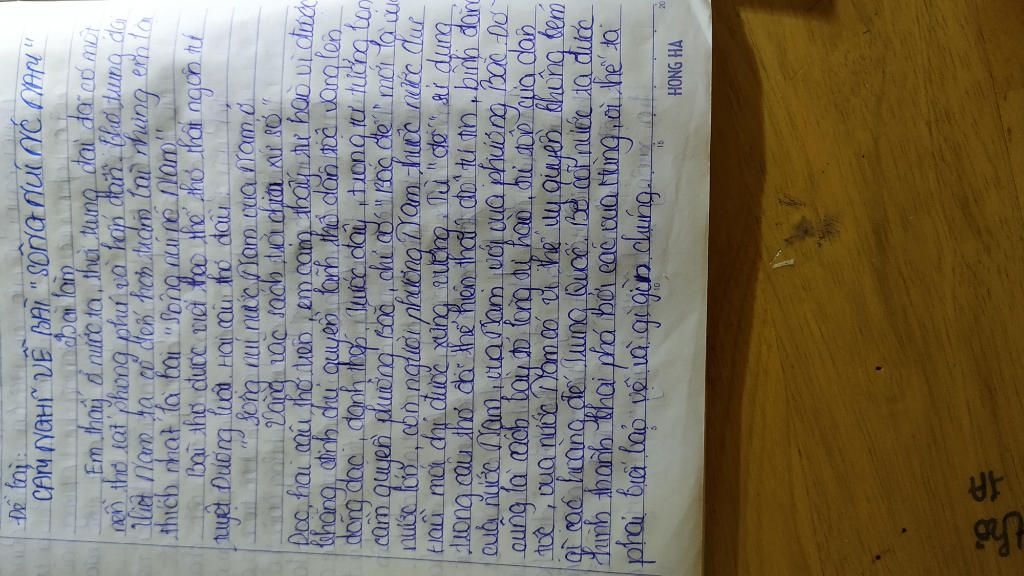 Đề bài:
CẢM NGHĨ VỀ BÀI "SÔNG NÚI NƯỚC NAM"
Bài làm
Em thấy ở nước ta, thời trung đại đã có một
nền thơ rất phong phú và hấp dẫn. Thơ trung đại
Việt Nam ta có đến hơn trăm bài nhưng em ta
thích nhất là bài "Sông núi nước Nam"
Bài thơ được viết theo thể thơ thất ngôn tứ
tuyệt Đường luật. Hai câu thơ đầu:
"Sông núi nước Nam vua Nam ở
Vằng vặc sách trời chia xứ sở"
Đọc hai câu thơ trên, em cảm thấy tự hào vì được
khẳng định chủ quyền lãnh thổ dân tộc vang lên
dõng dạc, đanh thép. Trước đây, trong tư tưởng bọn
cầm quyền phương Bắc, chỉ có "Bắc đế" mới là vua
nước lớn, còn người phương Nam thuộc nước chư
hầu mới chỉ được xưng vương. "Nam đế" sử dụng
trong câu thơ đã thể hiện thái độ tự tin, bình đẳng
giữa nước Nam, vua Nam với vua phương Bắc. Đó
cũng là cách bày tỏ lòng tự hào, chủ quyền của dân
tộc, vua nước Nam có vị thế, uy quyền không kém
gì các hoàng đế Trung Quốc. Bờ cõi nước ta được
hình thành, khai phá bởi các vua Hùng, vì thế ta
phải biết bảo vệ và gìn giữ chúng.
HONG HA
1A